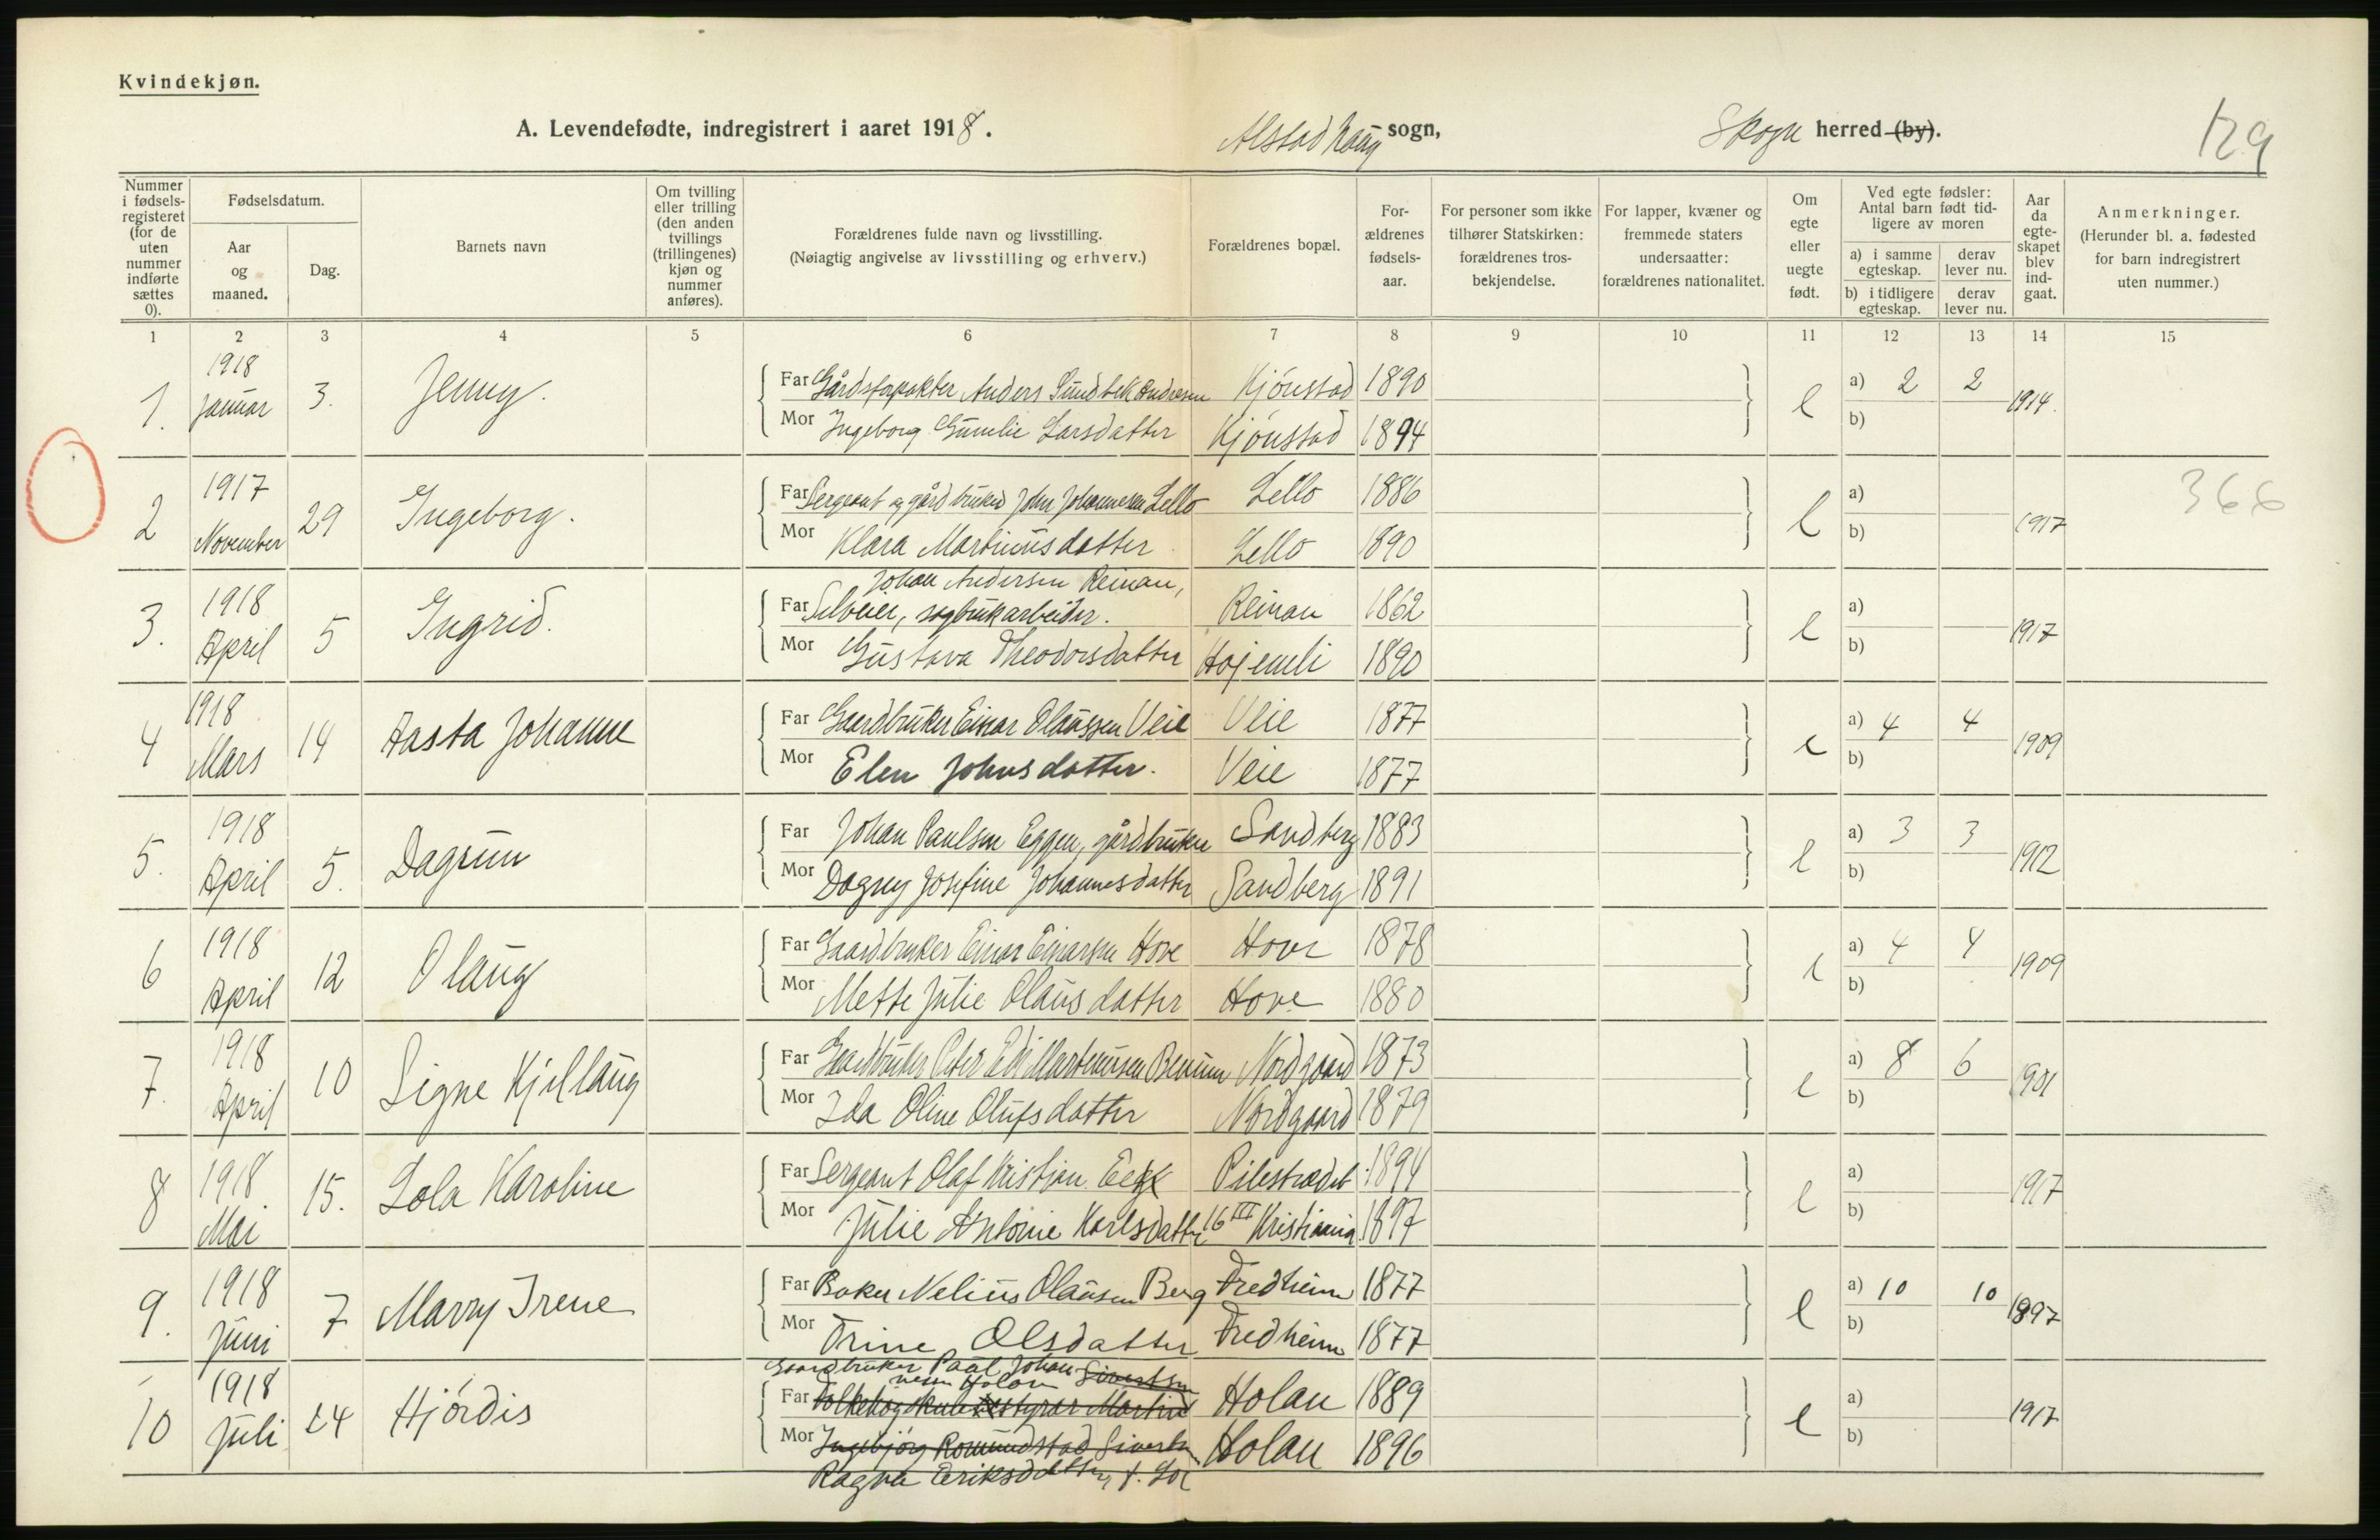 Kvindekjøn.
A. Levendefødte, indregistrert i aaret 1918. Alstadhaug sogn, Skogn herred (by). 129
Nummer i fødsels-registeret (for de uten nummer indførte sættes 0).
Fødselsdatum.
Aar og maaned.
Dag.
Barnets navn
Om tvilling eller trilling (den anden tvillings (trillingenes) kjøn og nummer anføres).
Forældrenes fulde navn og livsstilling.
(Nøiagtig angivelse av livsstilling og erhverv.)
Forældrenes bopæl.
For-ældrenes fødsels-aar.
For personer som ikke tilhører Statskirken: forældrenes tros-bekjendelse.
For lapper, kvæner og fremmede staters undersaatter: forældrenes nationalitet.
Om egte eller uegte født.
Ved egte fødsler: Antal barn født tid-ligere av moren
a) i samme egteskap. derav lever nu.
b) i tidligere egteskap. derav lever nu.
Aar da egte-skapet blev ind-gaat.
Anmerkninger.
(Herunder bl. a. fødested for barn indregistrert uten nummer.)
1 2 3 4 5 6 7 8 9 10 11 12 13 14 15
1. 1918 januar 3. Jenny.
Far Gårdsforpakter Anders Sundbek Andresen Kjönstad 1890 e a) 2 2 1914.
Mor Ingeborg Gunelie Larsdatter Kjönstad 1894 b)
2 1917 November 29 Ingeborg.
Far Sergeant og gårdbruker John Johannesen Lello Lello 1886 e a) 1917 366
Mor Klara Martinusdatter Lello 1890 b)
3. 1918 April 5 Ingrid.
Johan Andersen Reinan,
Far Selveier, sagbrukarbeider. Reinan 1862 e a) 1917
Mor Gustava Theodorsdatter Hojemli 1890 b)
4 1918 Mars 14 Aasta Johanne
Far Gaardbruker Einar Olaussen Veie Veie 1877 e a) 4 4 1909
Mor Elen Johnsdatter. Veie 1877 b)
5. 1918 April 5. Dagrun
Far Johan Paulsen Eggen, gårdbruker Sandberg 1883 e a) 3 3 1912
Mor Dagny Josefine Johannesdatter Sandberg 1891 b)
6 1918 April 12 Olaug
Far Gaardbruker Einar Einarsen Hove Hove 1878 e a) 4 4 1909
Mor Mette Julie Olausdatter Hove 1880 b)
7. 1918 April 10 Signe Kjellaug
Far Gaardbruker Peter Edv. Martinusen Benum Nordgaard 1873 e a) 8 6 1901
Mor Ida Oline Olufsdatter Nordgaard 1879 b)
8 1918 Mai 15. Lola Karoline
Far Sergeant Olaf Kristian Eek Pilestrædet 1894 e a) 1917
Mor Julie Antonie Karlsdatter 16 III Kristiania 1897 b)
9. 1918 Juni 7 Marry Irene
Far Baker Nelius Olausen Berg Fredheim 1877 e a) 10 10 1897
Mor Trine Olsdatter Fredheim 1877 b)
10 1918 Juli 24 Hjördis
Gaardbruker Paal Johan Sivertsen
nesen Holan
Far Folkehögskulestyrar Martin Holan 1889 e a) 1917
Mor Ingebjörg Romundstad Sivertsen Holan 1896 b)
Ragna Eeriksdatter, f.